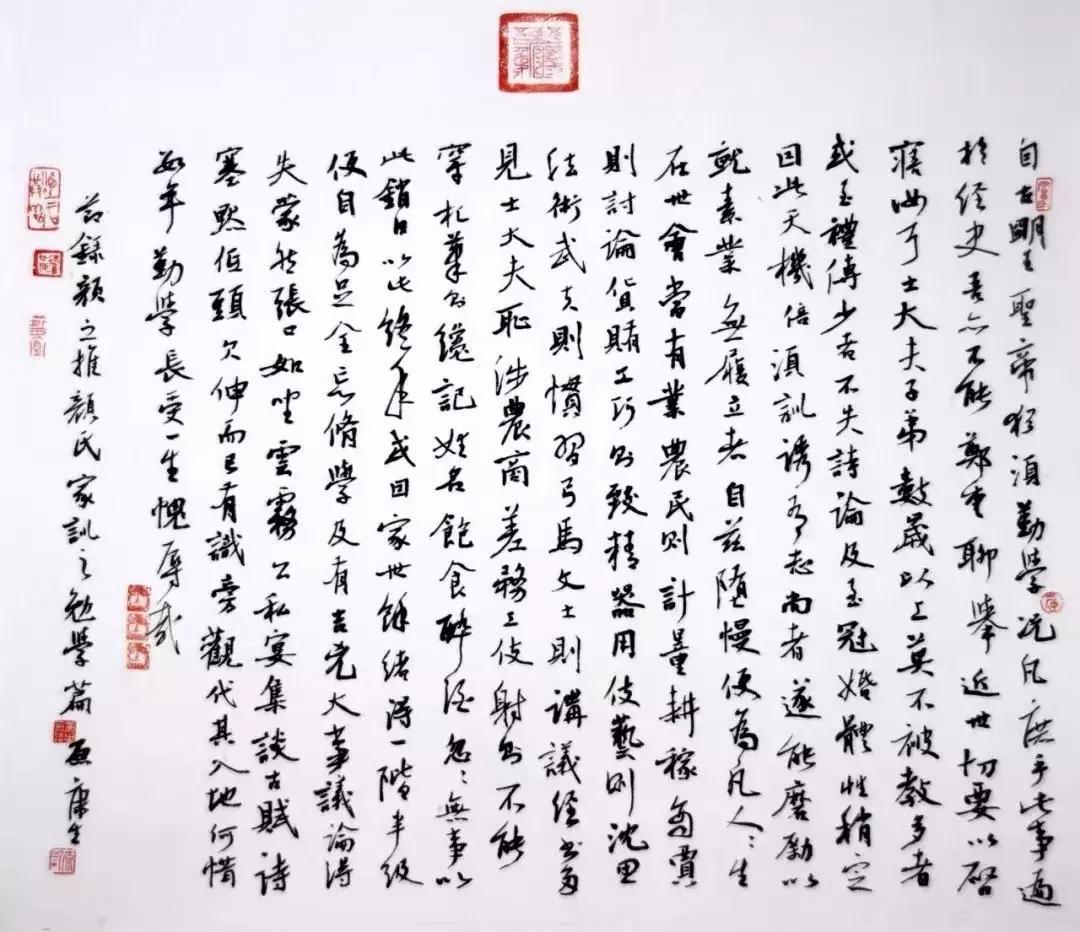 自古明王聖帝猶須勤學況凡庶乎此事遍
於經史吾亦不能鄭重聊舉近世切要以啓
寤汝耳士大夫子弟數歲以上莫不被教多者
或至禮傳少者不失詩論及至冠婚體性稍定
因此天機倍須訓誘有志尚者遂能磨勵以
就素業無履立者自茲墮慢便為凡人:生
在世會當有業農民則計量耕稼商賈
則討論貨賄工巧則致精器用伎藝則沈思
法術武夫則慣習弓馬文士則講議經書多
見士大夫恥涉農商差務工伎射則不能
穿札筆則纔記姓名飽食醉酒忽:無事以
此銷日以此終年或因家世餘緒得一階半級
便自為足全忘脩學及有吉凶大事議論得
失蒙然張口如坐雲霧公私宴集談古賦詩
塞默低頭欠伸而已有識旁觀代其入地何惜
數年勤學長受一生愧辱哉
節錄顏之推顏氏家訓之勉學篇 康生